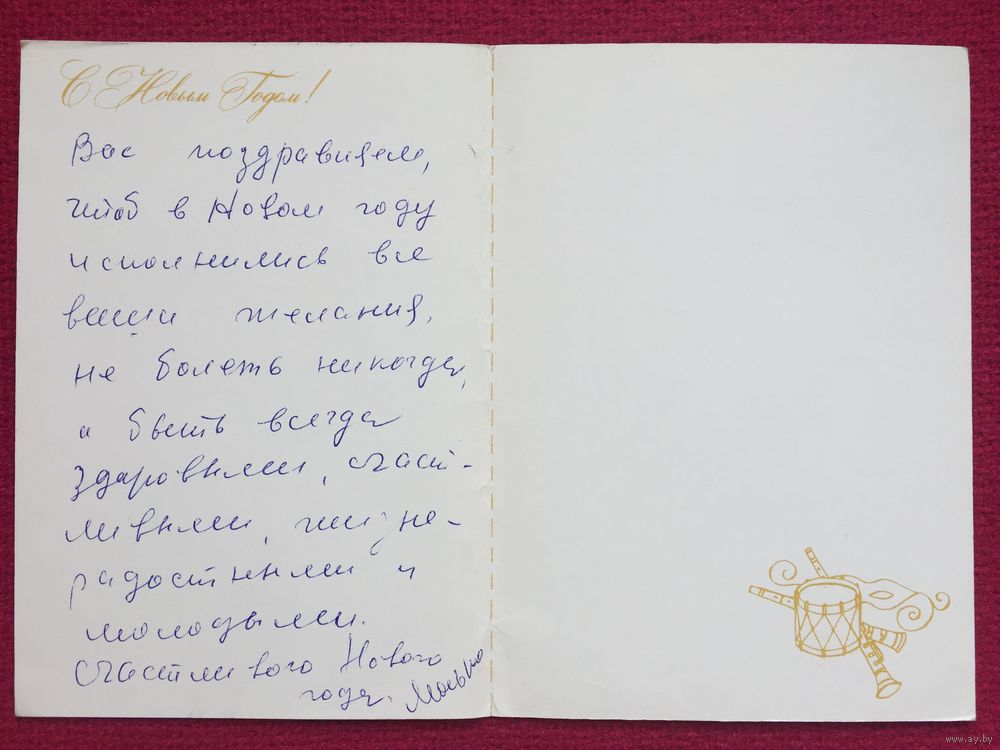 С Новым Годом!
Вас поздравляем,
чтоб в Новом году
исполнились все
ваши желания,
не болеть никогда,
а быть всегда
здаровыми, счаст-
ливыми, жизне-
радостными и
молодыми.
Счастливого Нового
года.
www.ay.by